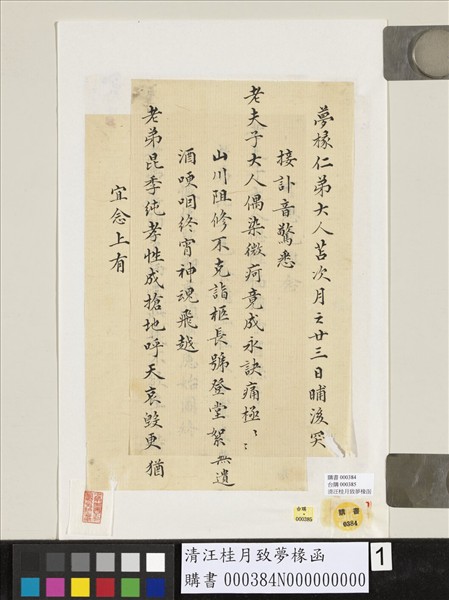 夢椽仁弟大人苫次月之廿三日晡後突
接訃音驚悉
老夫子大人偶染微疴竟成永訣痛極〻〻
山川阻修不克詣柩長號登堂絮無遺
酒哽咽終宵神魂飛越
老弟昆季純孝性成搶地呼天哀毀更猶
宜念上有
購書 000384
台購 000385
清汪桂月致夢椽函
台購
000385
購書
0384
清汪桂月致夢椽函
購書 000384N000000000
1